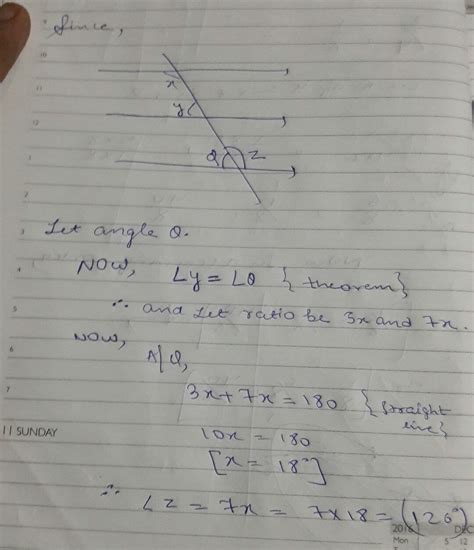 Since,
10
x
11
y
12
Q z
1
2
3 Let angle Q.
4 NOW, ∠y = ∠Q { theorem }
∴ and Let ratio be 3x and 7x.
5
NOW,
6 A/Q,
7 3x + 7x = 180 { straight line }
11 SUNDAY 10x = 180
[x = 18°]
∴ ∠z = 7x = 7x18 = (126°)
2016 DEC
Mon 5 12